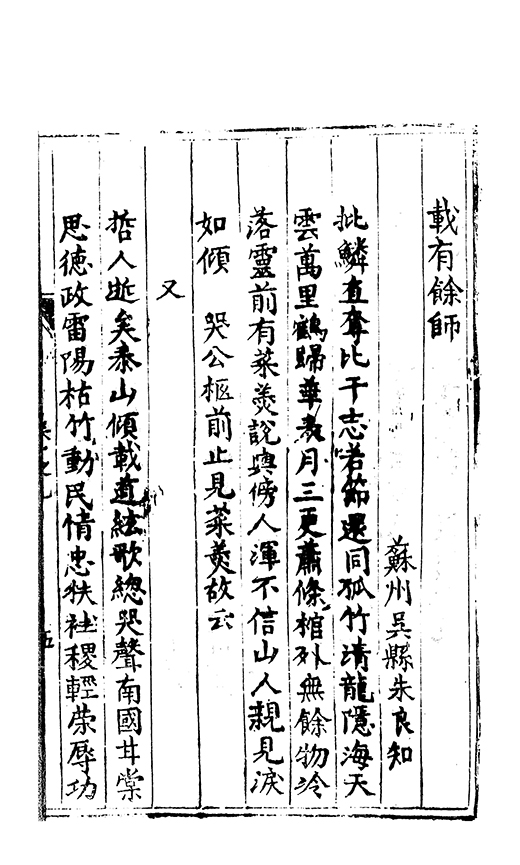 載有餘師
蘇州吳縣朱良知
批鱗直奪比干志苦節還同孤竹清龍隱海天
雲萬里鶴歸華表月三更蕭條棺外無餘物冷
落靈前有菜羹說與傍人渾不信山人親見淚
如傾　哭公柩前止見菜羹故云
又
哲人逝矣泰山傾載道絃歌總哭聲南國甘棠
思德政雷陽枯竹動民情忠扶社稷輕榮辱功
五